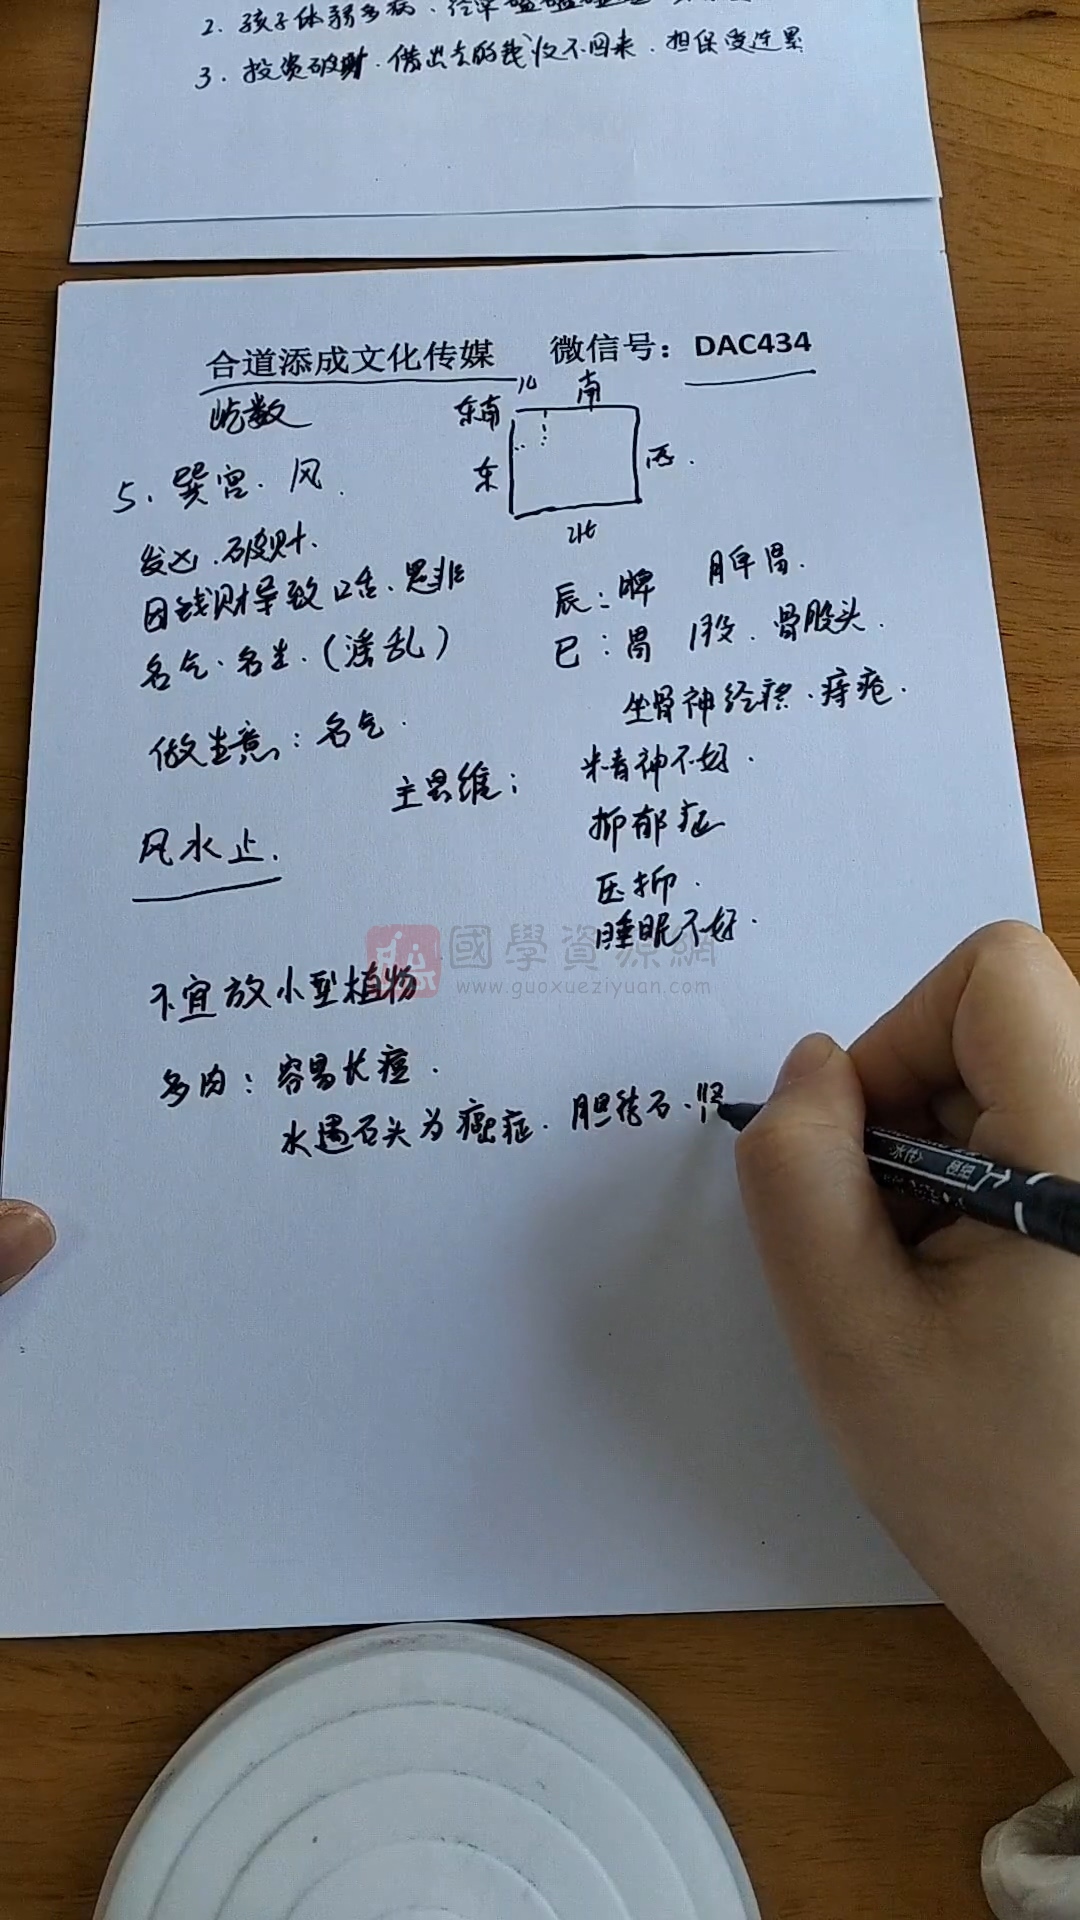 2. 孩子体弱多病. 经常磕磕碰碰
3. 投资破财. 借出去的钱收不回来. 担保受连累
合道添成文化传媒 微信号：DAC434
屹数
东南 南
东 西.
北
5. 巽宫. 风.
发凶. 破财.
因钱财导致口舌. 是非
名气. 名声. (淫乱)
做生意: 名气.
辰: 脾 脾胃.
巳: 胃 股. 骨股头.
坐骨神经痛. 痔疮.
主思维: 精神不好.
抑郁症
压抑.
睡眠不好.
风水止.
國學資源網
www.guoxueziyuan.com
不宜放小型植物
多肉: 容易长痘.
水遇石头为癌症. 胆结石. 肾